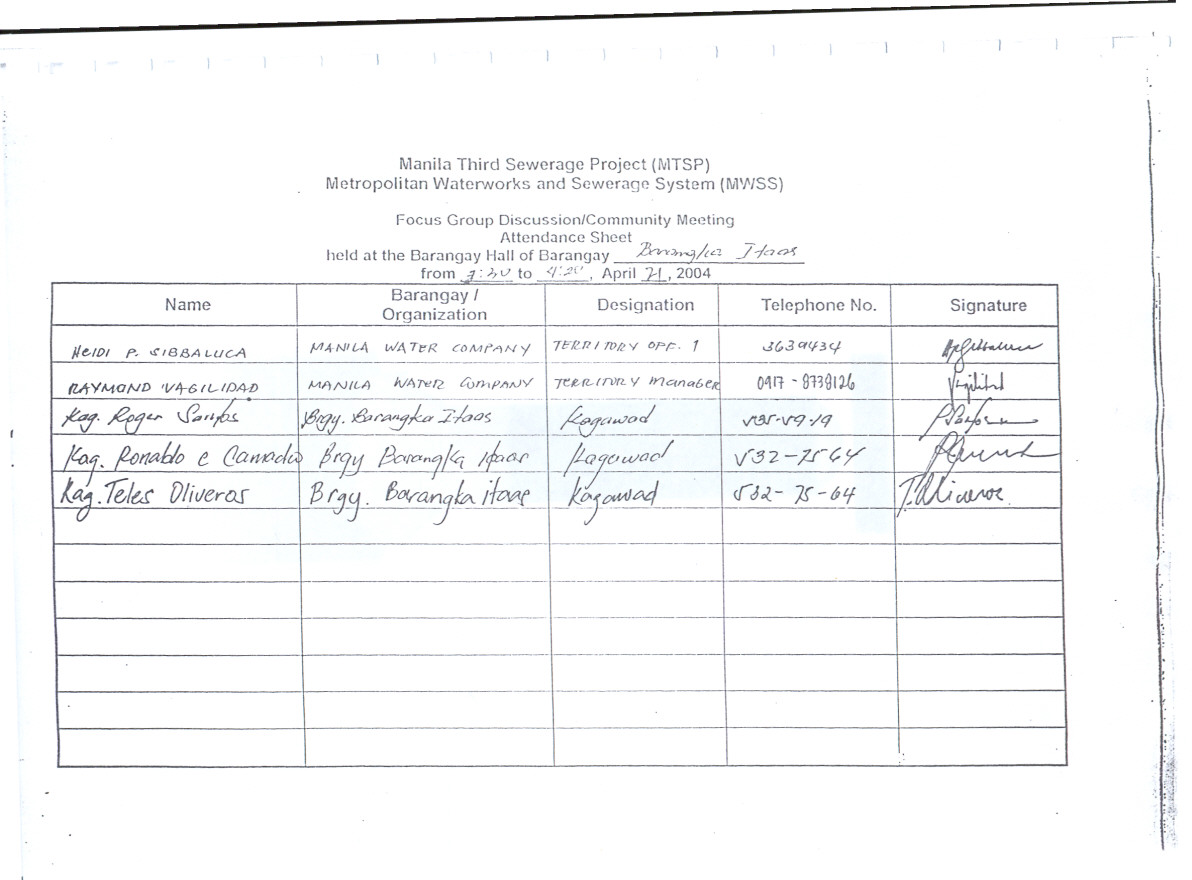 Manila Third Sewerage Project (MTSP)
Metropolitan Waterworks and Sewerage System (MWSS)
Focus Group Discussion/Community Meeting
Attendance Sheet
held at the Barangay Hall of Barangay Barangka Itaas
from to 4:20, April 21, 2004
Name Barangay / Organization Designation Telephone No. Signature
HEIDI P. SIBBALUCA MANILA WATER COMPANY TERRITORY OFF. 1 3639434
RAYMOND VAGILIDAD MANILA WATER COMPANY TERRITORY Manager 0917-8738126
Kag. Roger Santos Brgy. Barangka Itaas Kagawad 535-59-19
Kag. Ronaldo c Brgy Barangka Itaas Kagawad 532-75-64
Kag. Teles Oliveros Brgy. Barangka itaas Kagawad 532-75-64 T. Oliveros